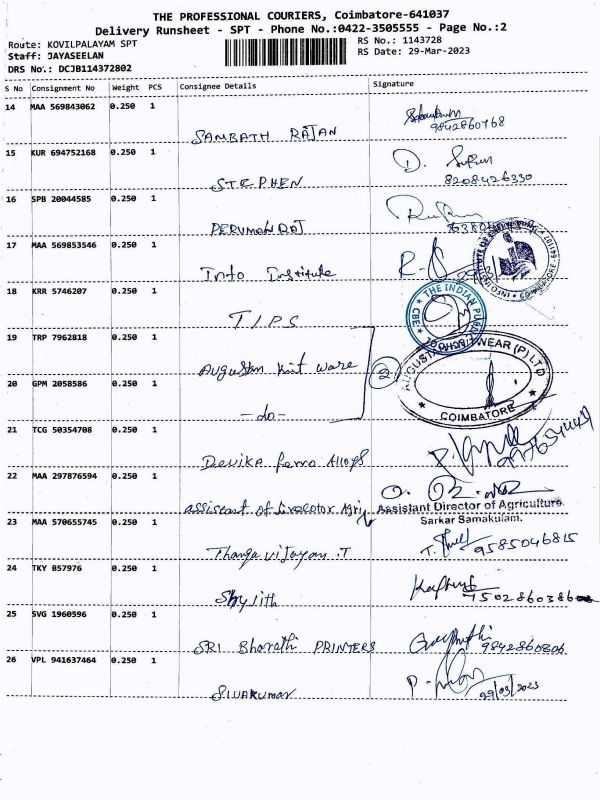 THE PROFESSIONAL COURIERS, Coimbatore-641037
Delivery Runsheet - SPT - Phone No.:0422-3505555 - Page No.:2
Route: KOVILPALAYAM SPT
RS No.: 1143728
Staff: JAYASEELAN
RS Date: 29-Mar-2023
DRS No.: DCJB114372802
S No Consignment No Weight PCS Consignee Details Signature
14 MAA 569843062 0.250 1
SAMBATH RAJAN
9842860768
15 KUR 694752168 0.250 1
STEPHEN
8208426330
16 SPB 20044585 0.250 1
PERUMALRAJ
17 MAA 569853546 0.250 1
Info Institute
18 KRR 5746207 0.250 1
TIPS
THE INDIAN PUBLIC
CBE
19 TRP 7962818 0.250 1
Augustan knit ware
2
AUGUSTAN KNITWEAR (P) LTD
COIMBATORE
20 GPM 2058586 0.250 1
-do-
21 TCG 50354708 0.250 1
Devika ferro Alloys
22 MAA 297876594 0.250 1
assistant of Director Agri
Assistant Director of Agriculture
Sarkar Samakulam.
23 MAA 570655745 0.250 1
Thangavijayan .T
9585046815
24 TKY 857976 0.250 1
Shylith
25 SVG 1960596 0.250 1
SRI Bharathi PRINTERS
9842860806
26 VPL 941637464 0.250 1
SIVAKUMAR
29/03/2023